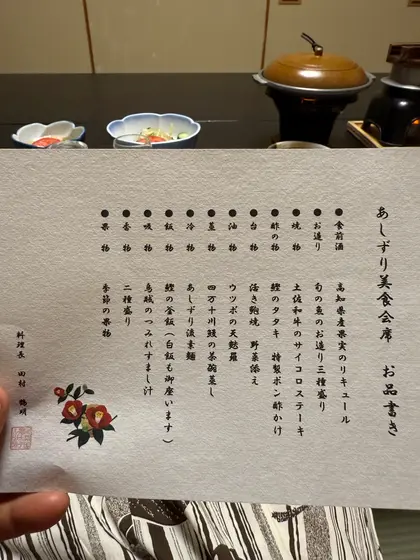 あしずり美食会席　お品書き
●食前酒　高知県産果実のリキュール
●お造り　旬の魚のお造り三種盛り
●焼物　土佐和牛のサイコロステーキ
●酢の物　鰹のタタキ　特製ポン酢かけ
●台物　活き鮑焼　野菜添え
●油物　ウツボの天麩羅
●蒸物　四万十川鰻の茶碗蒸し
●冷物　あしずり淡素麺
●飯物　鰹の釜飯(白飯も御座います)
●吸物　烏賊のつみれすまし汁
●香物　二種盛り
●果物　季節の果物
料理長　田村